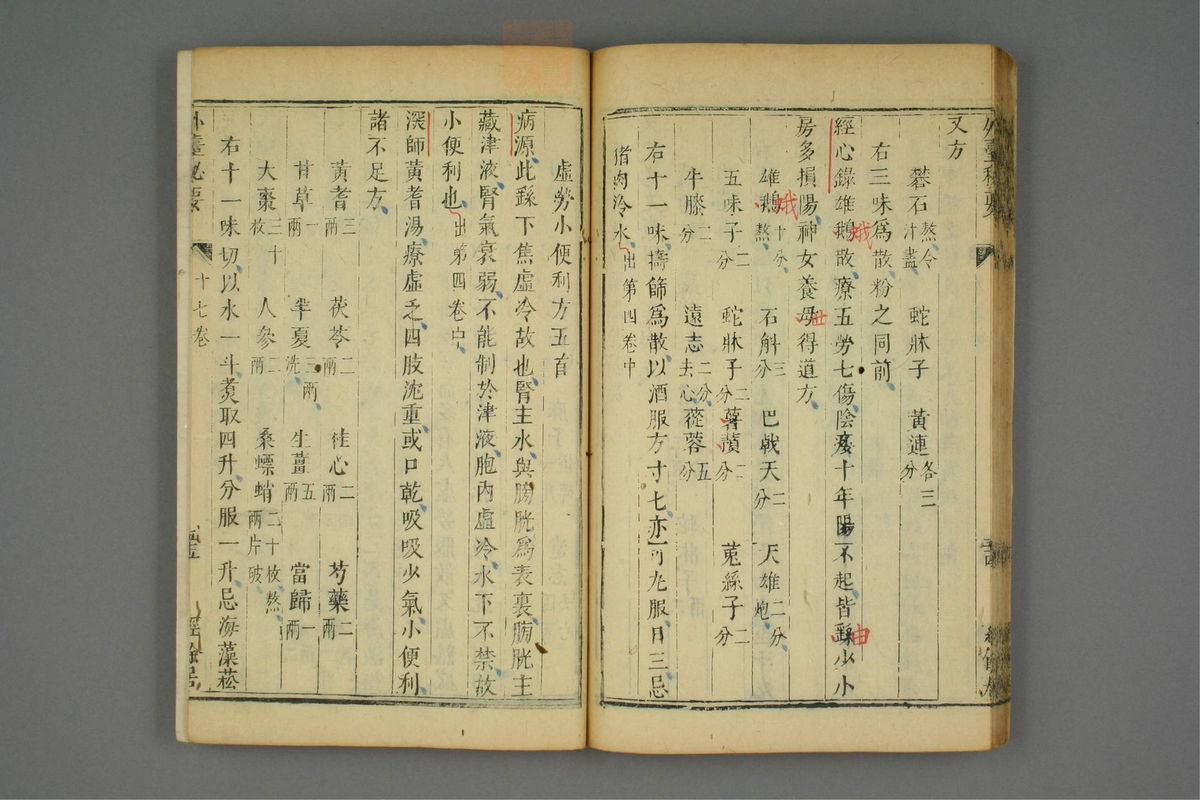 又方
礬石熬令汁盡 蛇牀子 黃連各三分
右三味爲散粉之同前
經心錄雄鵝散療五勞七傷陰痿十年陽不起皆繇少小
蛾
由
房多損陽神女養母得道方
世
雄鵝十分熬 石斛三分 巴戟天二分 天雄二分炮
蛾
五味子二分 蛇牀子二分 薯蕷二分 菟絲子二分
牛膝二分 遠志二分去心 蓯蓉五分
右十一味擣篩爲散以酒服方寸七亦可丸服日三忌
猪肉冷水出第四卷中
虛勞小便利方五首
病源此繇下焦虛冷故也腎主水與膀胱爲表裏膀胱主
藏津液腎氣衰弱不能制於津液胞內虛冷水下不禁故
小便利也出第四卷中
深師黃耆湯療虛乏四肢沈重或口乾吸吸少氣小便利
諸不足方
黃耆三兩 茯苓二兩 桂心二兩 芍藥二兩
甘草一兩 半夏三兩洗 生薑五兩 當歸一兩
大棗三十枚 人參二兩 桑螵蛸二十枚熬兩片破
右十一味切以水一斗煑取四升分服一升忌海藻菘
外臺秘要 十七卷 經餘居